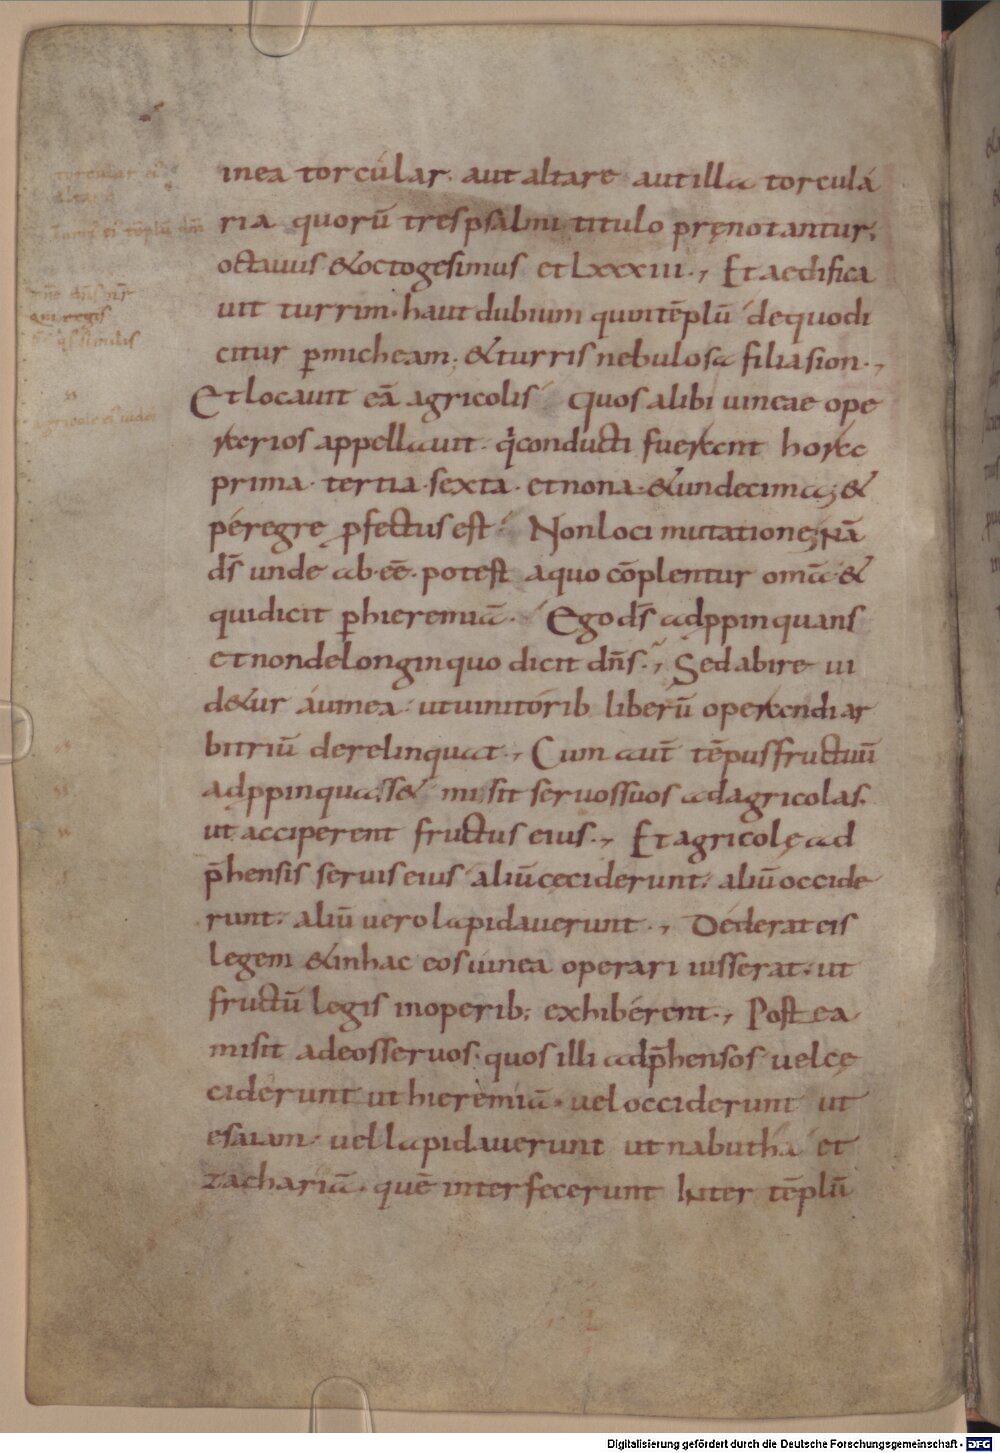 inea torcular. aut altare aut illa torcula
ria quorū tres psalmi titulo pręnotantur;
octauus & octogesimus et lxxxiii., Et aedifica
uit turrim. haut dubium quin tēplū de quo di
citur p micheam; & turris nebulosa filia sion.,
Et locauit eā agricolis. quos alibi uineae ope
rarios appellauit. qi conducti fuerant hora
prima. tertia. sexta. et nona. & undecima; &
peregre pfectus est. Non loci mutatione; nā
ds̄ unde ab eē. potest a quo cōplentur omīa &
qui dicit p hieremiā. Ego ds̄ adppinquans
et non de longinquo dicit dn̄s., Sed abire ui
d&ur a uinea. ut uinitorib liberū operandi ar
bitriū derelinquat., Cum aut̄ tēpus fructuū
adppinquass& misit seruos suos ad agricolas.
ut acciperent fructus eius., Et agricolę ad
p̄hensis seruis eius aliū ceciderunt. aliū occide
runt. aliū uero lapidauerunt., Dederat eis
legem & in hac eos uinea operari iusserat. ut
fructū legis in operib; exhiberent., Postea
misit ad eos seruos. quos illi adp̄hensos uel cę
ciderunt ut hieremiā. uel occiderunt ut
esaiam. uel lapidauerunt ut nabutha et
zachariā. quē interfecerunt inter tēplū
turris ei tēplū
agricole ei iudei
Digitalisierung gefördert durch die Deutsche Forschungsgemeinschaft - DFG